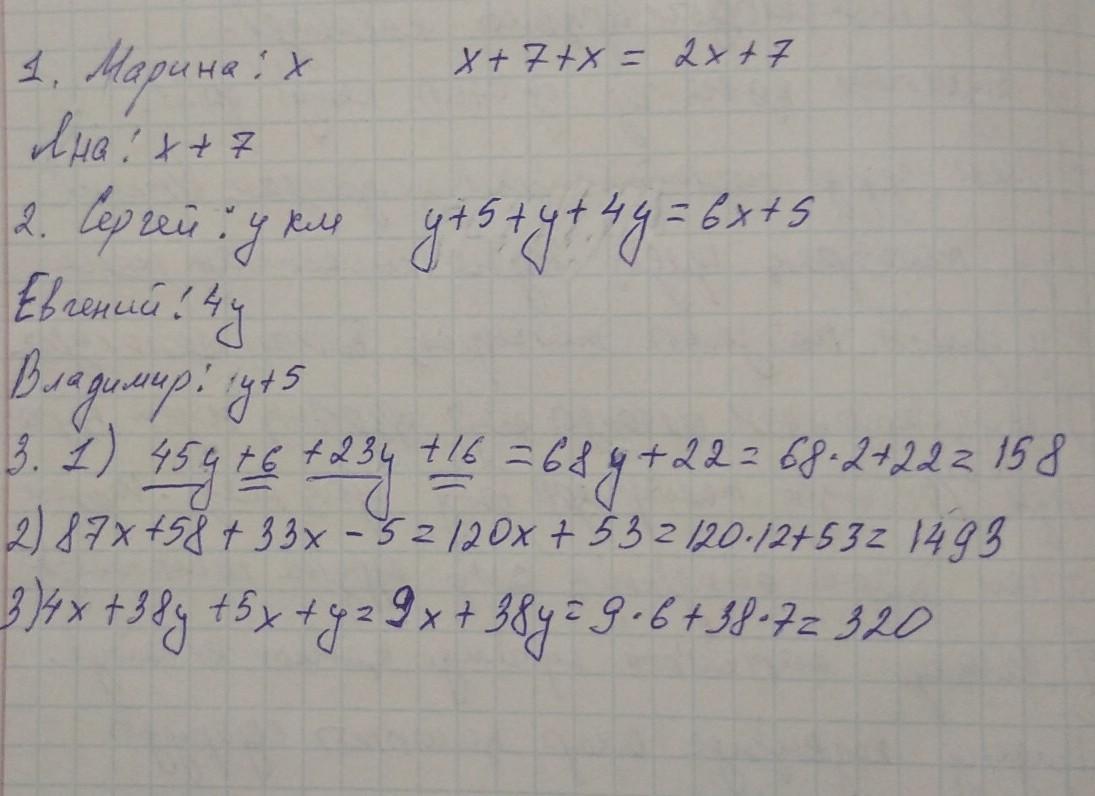 1. Марина: x x+7+x = 2x+7
Яна: x+7
2. Сергей: y км y+5+y+4y=6x+5
Евгений: 4y
Владимир: y+5
3. 1) 45y+6+23y+16=68y+22=68·2+22=158
2) 87x+58+33x-5=120x+53=120·12+53=1493
3) 4x+38y+5x+y=9x+38y=9·6+38·7=320